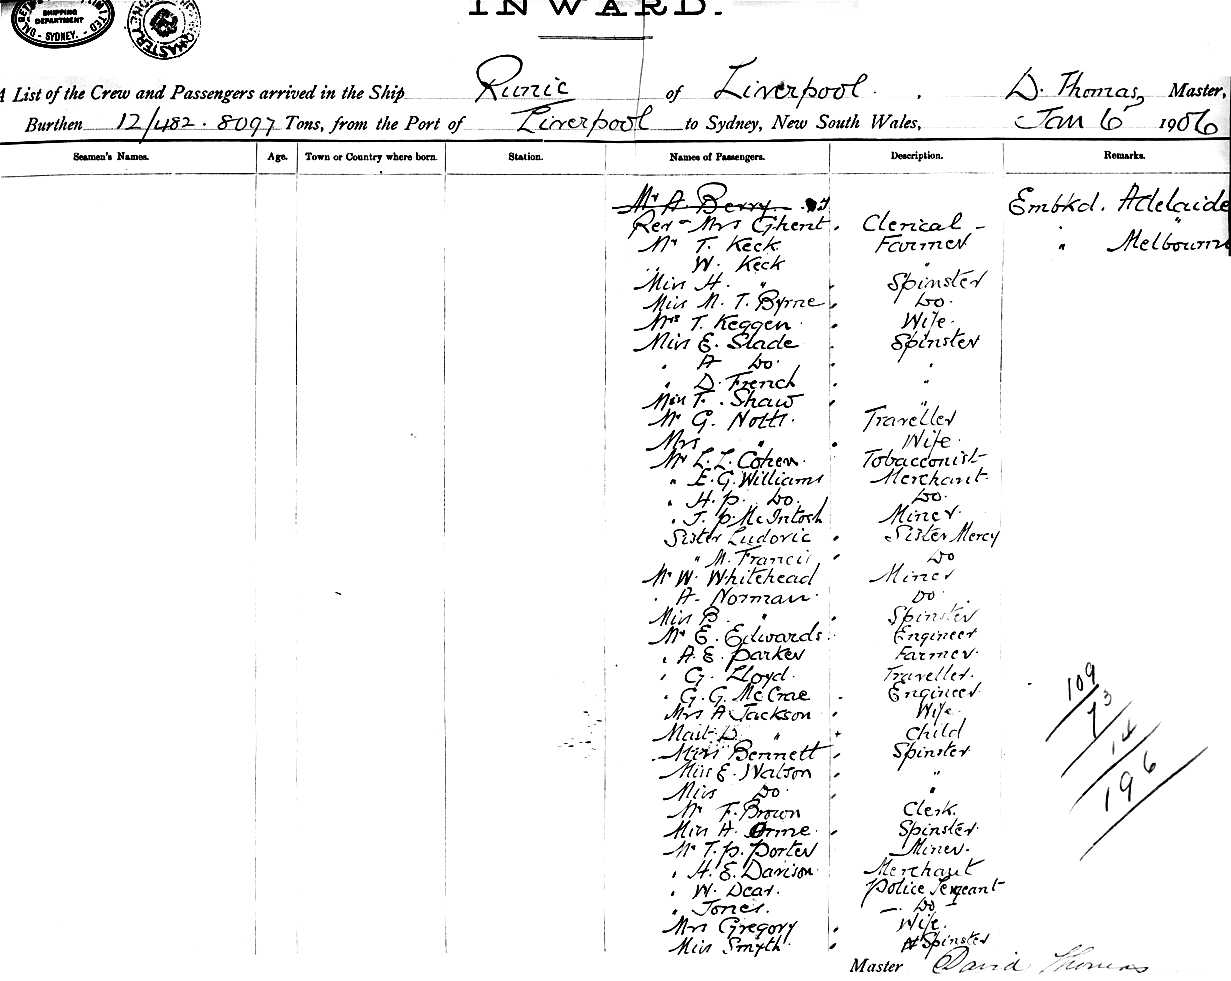 SHIPPING
DEPARTMENT
SYDNEY.
INWARD.
A List of the Crew and Passengers arrived in the Ship Runic of Liverpool. D. Thomas, Master,
Burthen 12/482. 8097 Tons, from the Port of Liverpool to Sydney, New South Wales, Jan 6 1906
Seamen's Names. Age. Town or Country where born. Station. Names of Passengers. Description. Remarks.
Mr A Berry Embkd. Adelaide
Rev - Mrs Ghent. Clerical - "
Mr T. Keck Farmer " Melbourne
.. W. Keck "
Miss H. " Spinster
Miss M. T. Byrne Do.
Mrs T. Keggen Wife.
Miss E. Slade Spinster
" A Do. "
" D. French "
Miss F. Shaw "
Mr G. Notts. Traveller
Mrs " Wife.
Mr L. L. Cohen. Tobacconist
" E. G. Williams Merchant
" H. P. Do. Do.
" J. P. McIntosh Miner.
Sister Ludovic Sister Mercy
" M. Francis Do
Mr W. Whitehead Miner
" A. Norman. Do
Miss B. " Spinster
Mr E. Edwards. Engineer
" A. E. Parker Farmer.
" G. Lloyd. Traveller.
" G. G. McCrae Engineer.
Mrs A Jackson Wife.
Mast D. " Child
Miss Bennett Spinster
Miss E. Watson "
Miss Do. "
Mr F. Brown Clerk.
Miss H. Orme. Spinster.
Mr T. P. Porter Miner.
" H. E. Davison. Merchant
" W. Dear. Police Sergeant
" Jones. - Do -
Mrs Gregory Wife.
Miss Smyth. Spinster
109
73
14
196
Master David Thomas